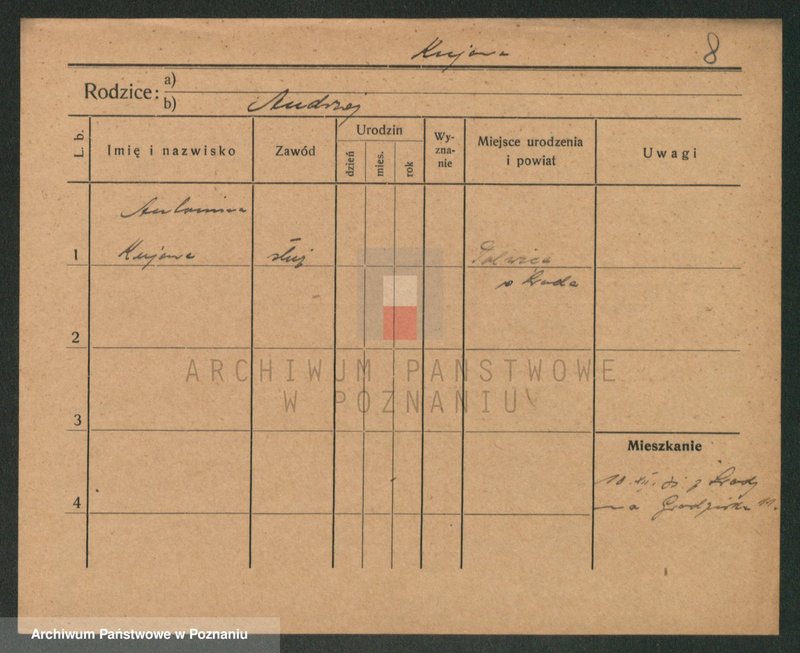 Kujawa 8
Rodzice: a)
b) Andrzej
L. b. Imię i nazwisko Zawód Urodzin dzień mies. rok Wy-zna-nie Miejsce urodzenia i powiat Uwagi
Antonina
1 Kujawa służ
p Środa
2
ARCHIWUM PAŃSTWOWE
W POZNANIU
3
Mieszkanie
10. XII. z Środy
4 na Grodziska
Archiwum Państwowe w Poznaniu